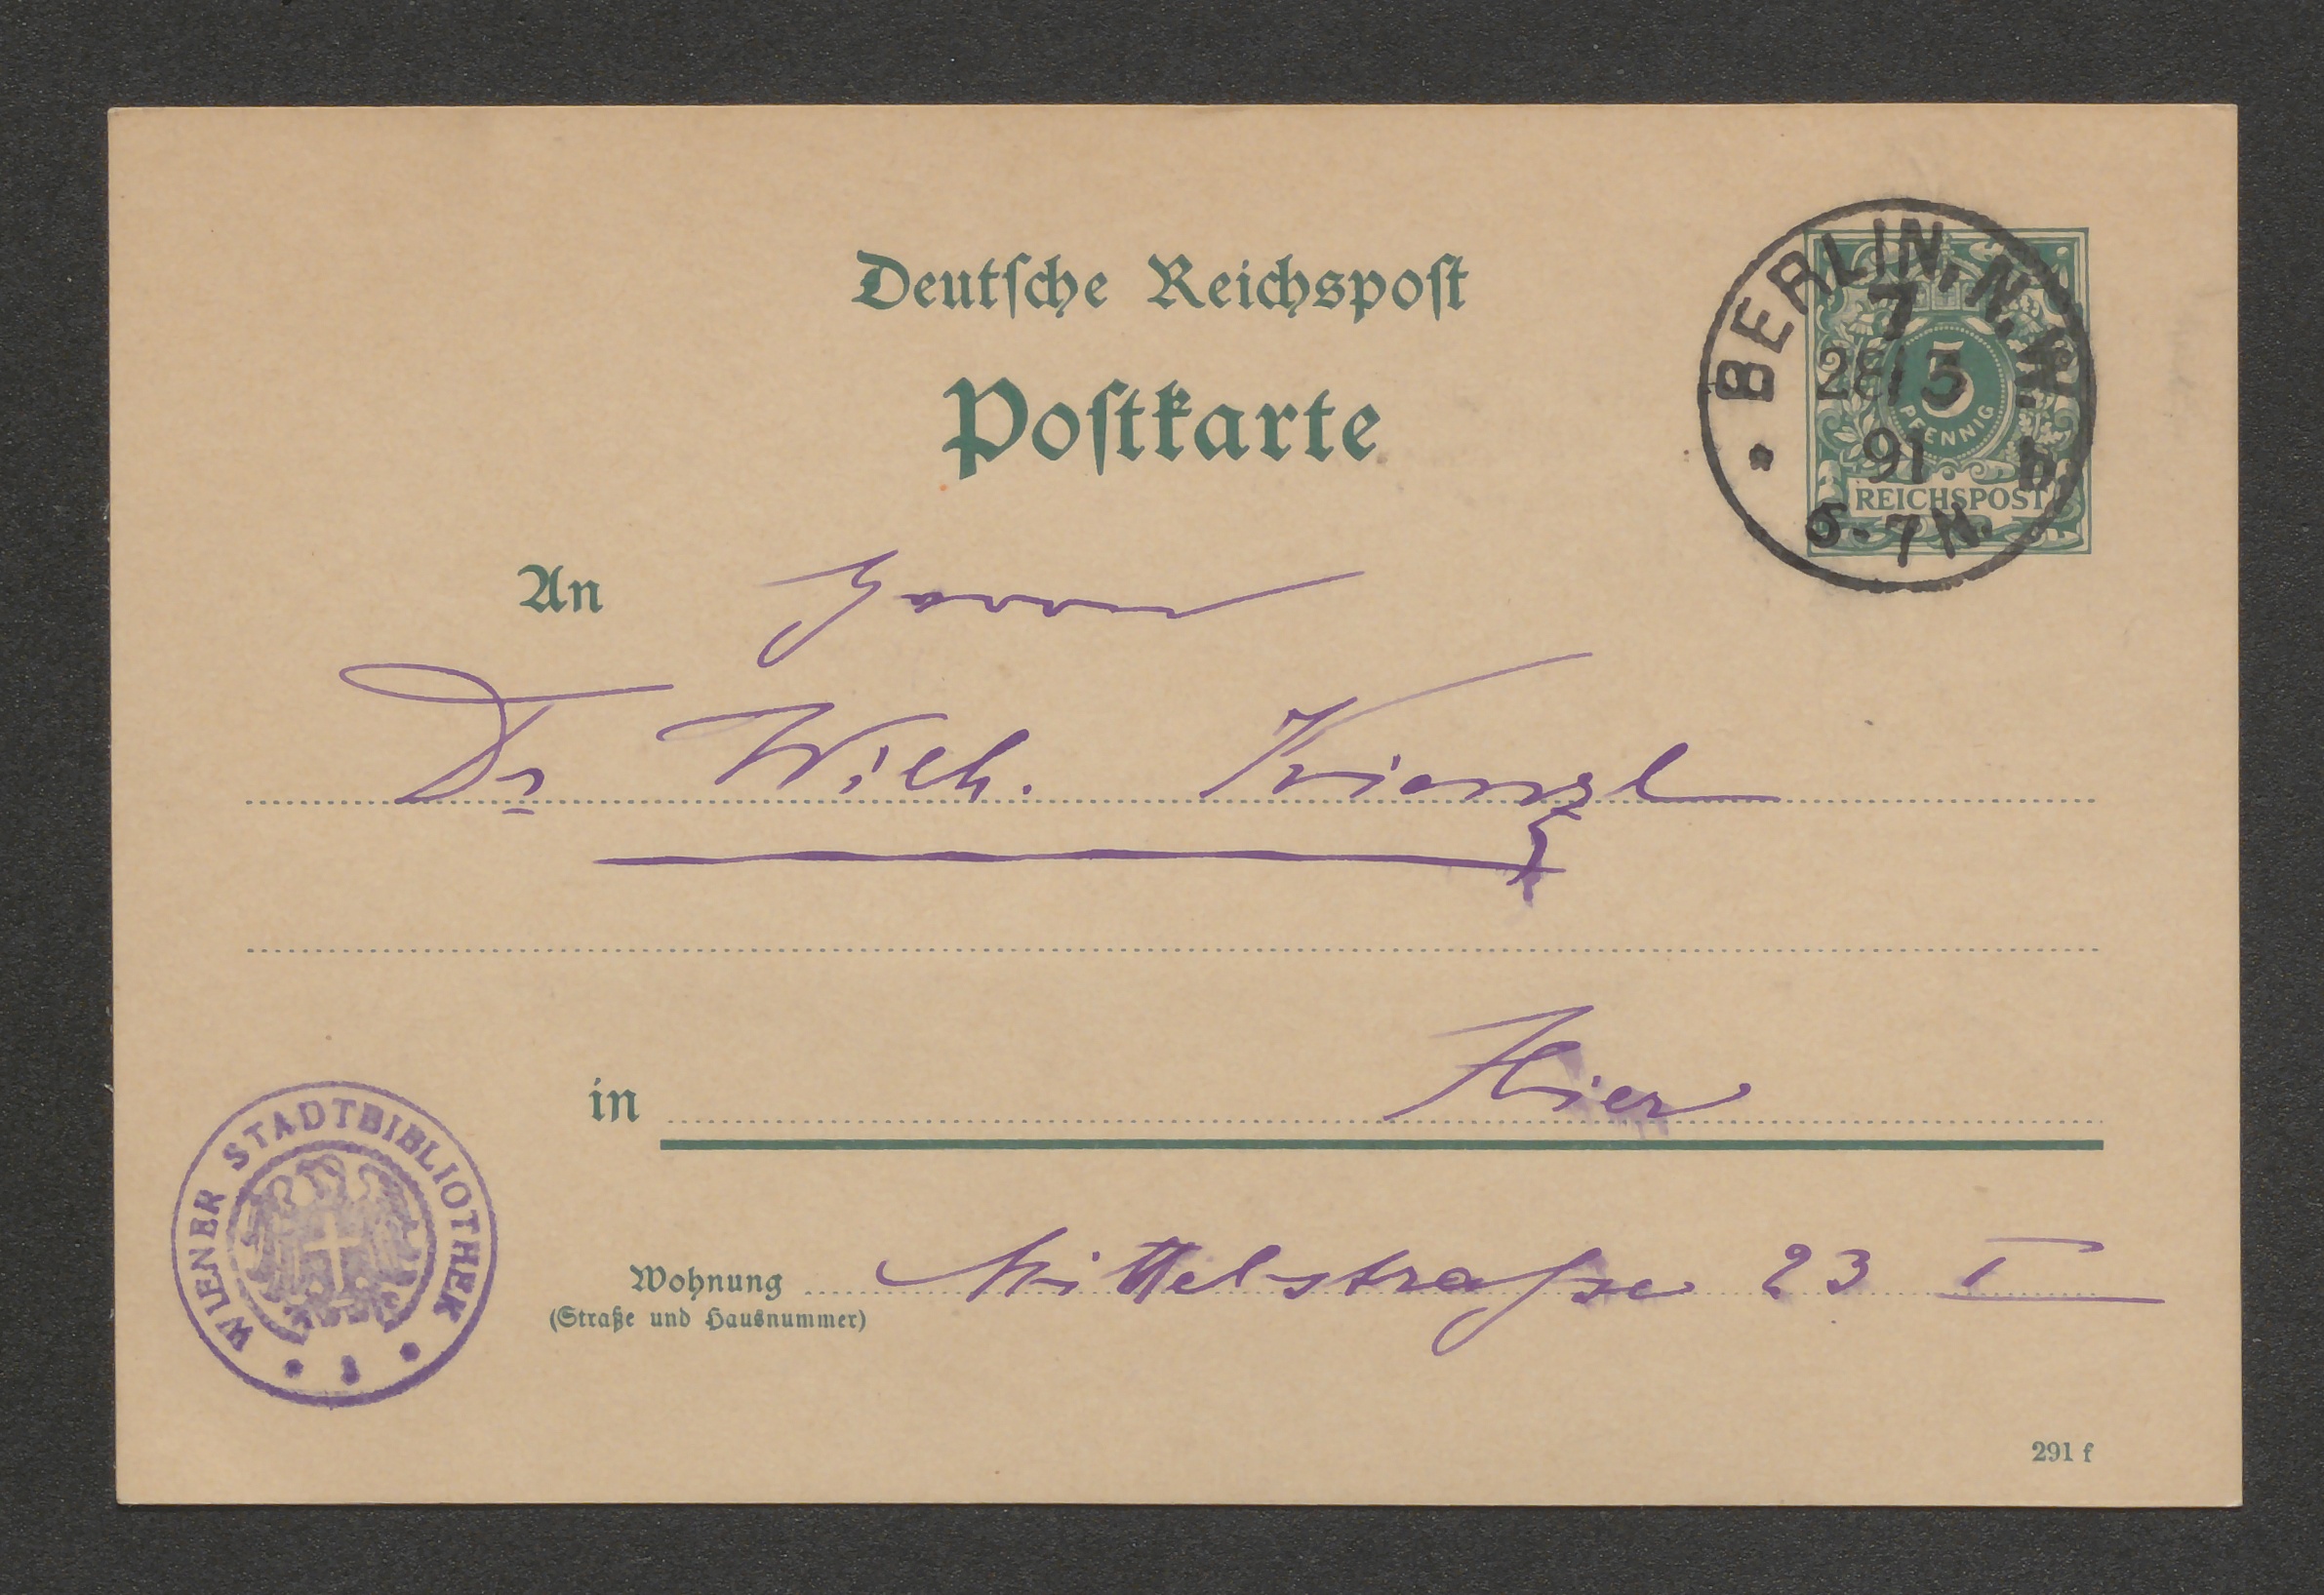 Deutsche Reichspost
Postkarte
BERLIN, N.W.
7
28 3
91
b
6-7 N.
5
PFENNIG
REICHSPOST
An Herrn
Dr Wilh. Kienzl
in Hier
Wohnung Mittelstraße 23 I
(Straße und Hausnummer)
WIENER STADTBIBLIOTHEK
291 f